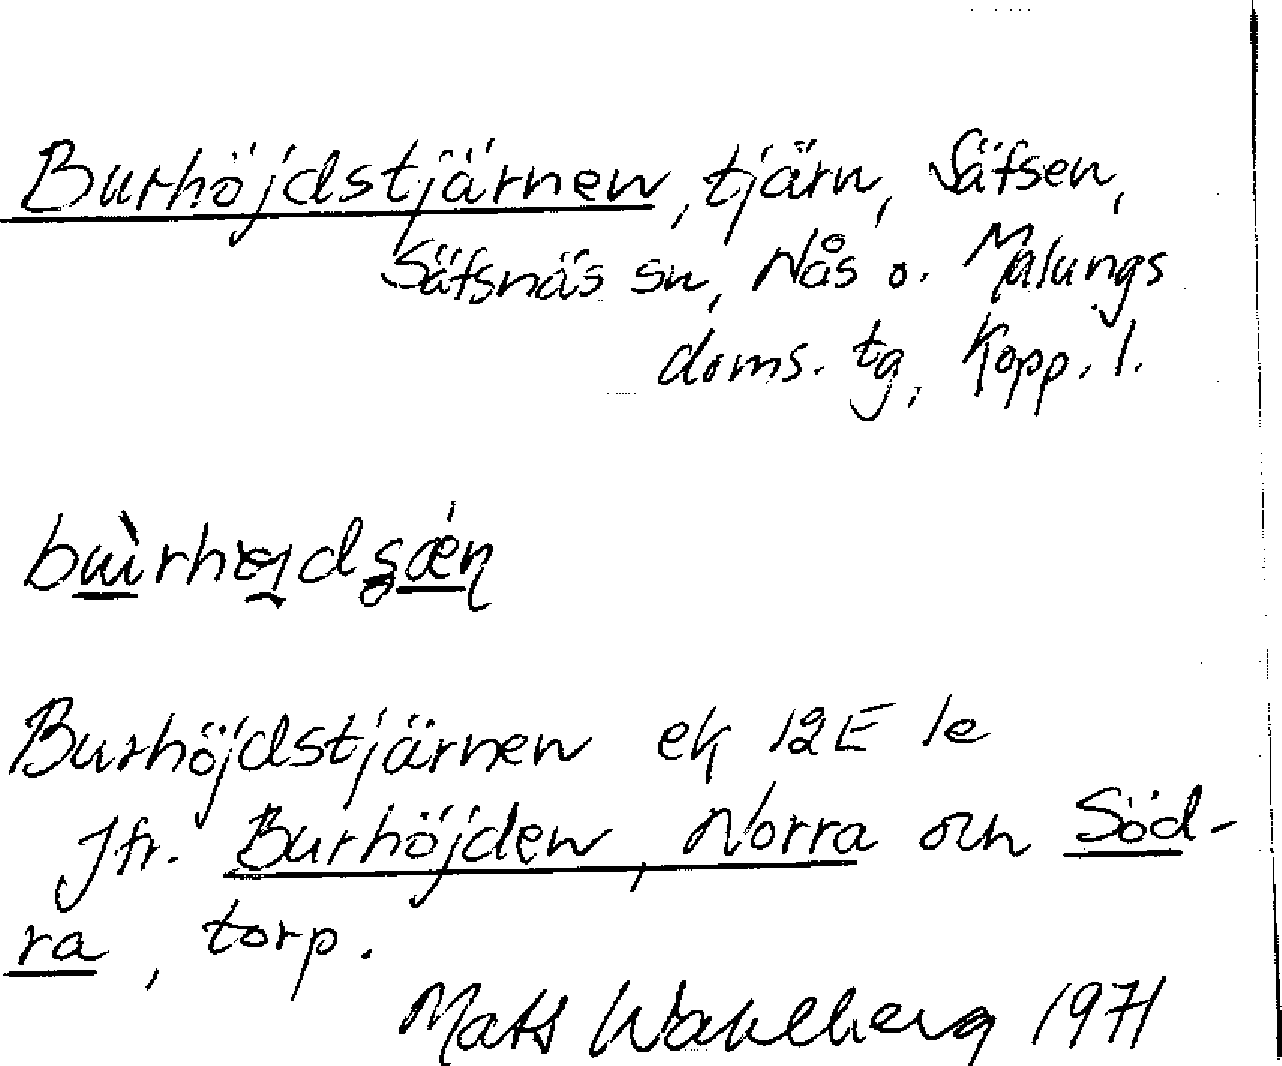 Burhöjdstjärnen, tjärn, Säfsen,
Säfsnäs sn, Nås o. Malungs
doms. tg, Kopp. l.
Burhöjdstjärnen ek 12E 1e
Jfr. Burhöjden, Norra och Söd-
ra, torp.
Mats Wahlberg 1971